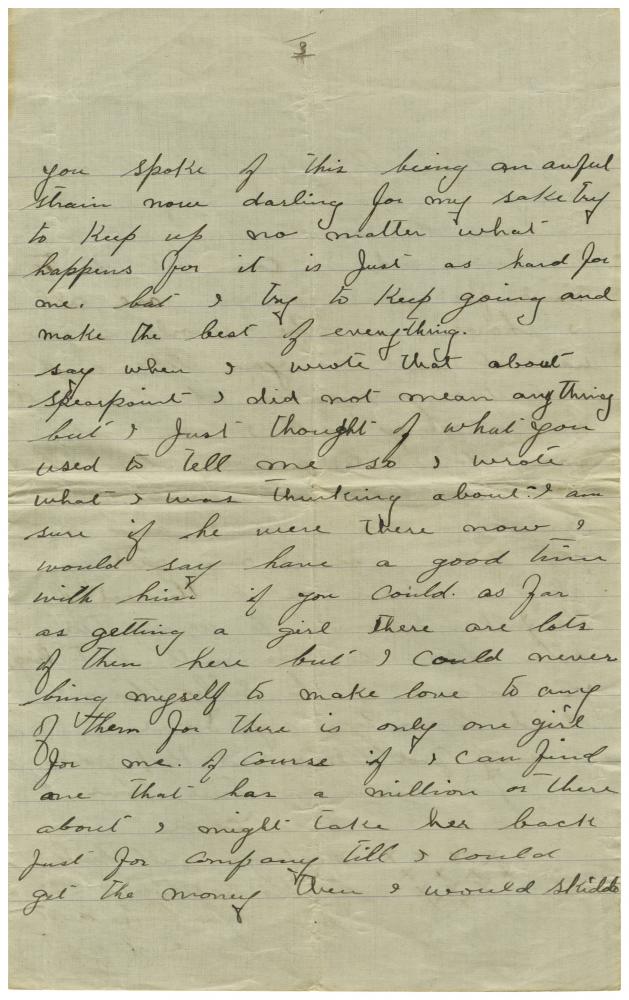 3
you spoke of this being an awful
strain now darling for my sake try
to Keep up no matter what
happens for it is Just as hard for
me. but I try to Keep going and
make the best of everything.
say when I wrote that about
spearpoint I did not mean anything
but I Just thought of what you
used to tell me so I wrote
what I was thinking about. I am
sure if he were there now I
would say have a good time
with him if you could. as far
as getting a girl there are lots
of them here but I could never
bring myself to make love to any
of them for there is only one girl
for me. of course if I can find
one that has a million or there
about I might take her back
Just for company till I could
get the money then I would skiddo